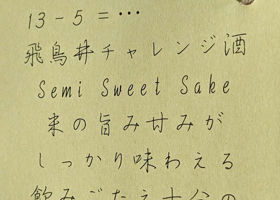 13 - 5 = …
飛鳥井チャレンジ酒
Semi Sweet Sake
米の旨み甘みが
しっかり味わえる
飲みごたえ十分の